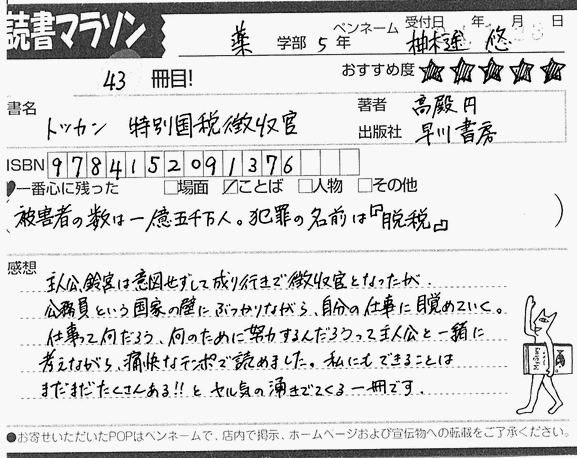 読書マラソン
薬 学部 5 年 ペンネーム 柚木達 悠 受付日 年 月 日
43 冊目!
おすすめ度 ★★★★★
書名 トッカン 特別国税徴収官
著者 高殿円
出版社 早川書房
ISBN 9784152091376
一番心に残った □場面 ☑ことば □人物 □その他
(被害者の数は一億五千万人。犯罪の名前は『脱税』)
感想
主人公、鈴宮は意図せずして成り行きで徴収官となったが、
公務員という国家の壁にぶつかりながら、自分の仕事に目覚めていく。
仕事って何だろう、何のために努力するんだろうって主人公と一緒に
考えながら、痛快なテンポで読めました。私にもできることは
まだまだたくさんある!!とヤル気の湧きでてくる一冊です。
●お寄せいただいたPOPはペンネームで、店内で掲示、ホームページおよび宣伝物への転載をご了承ください。